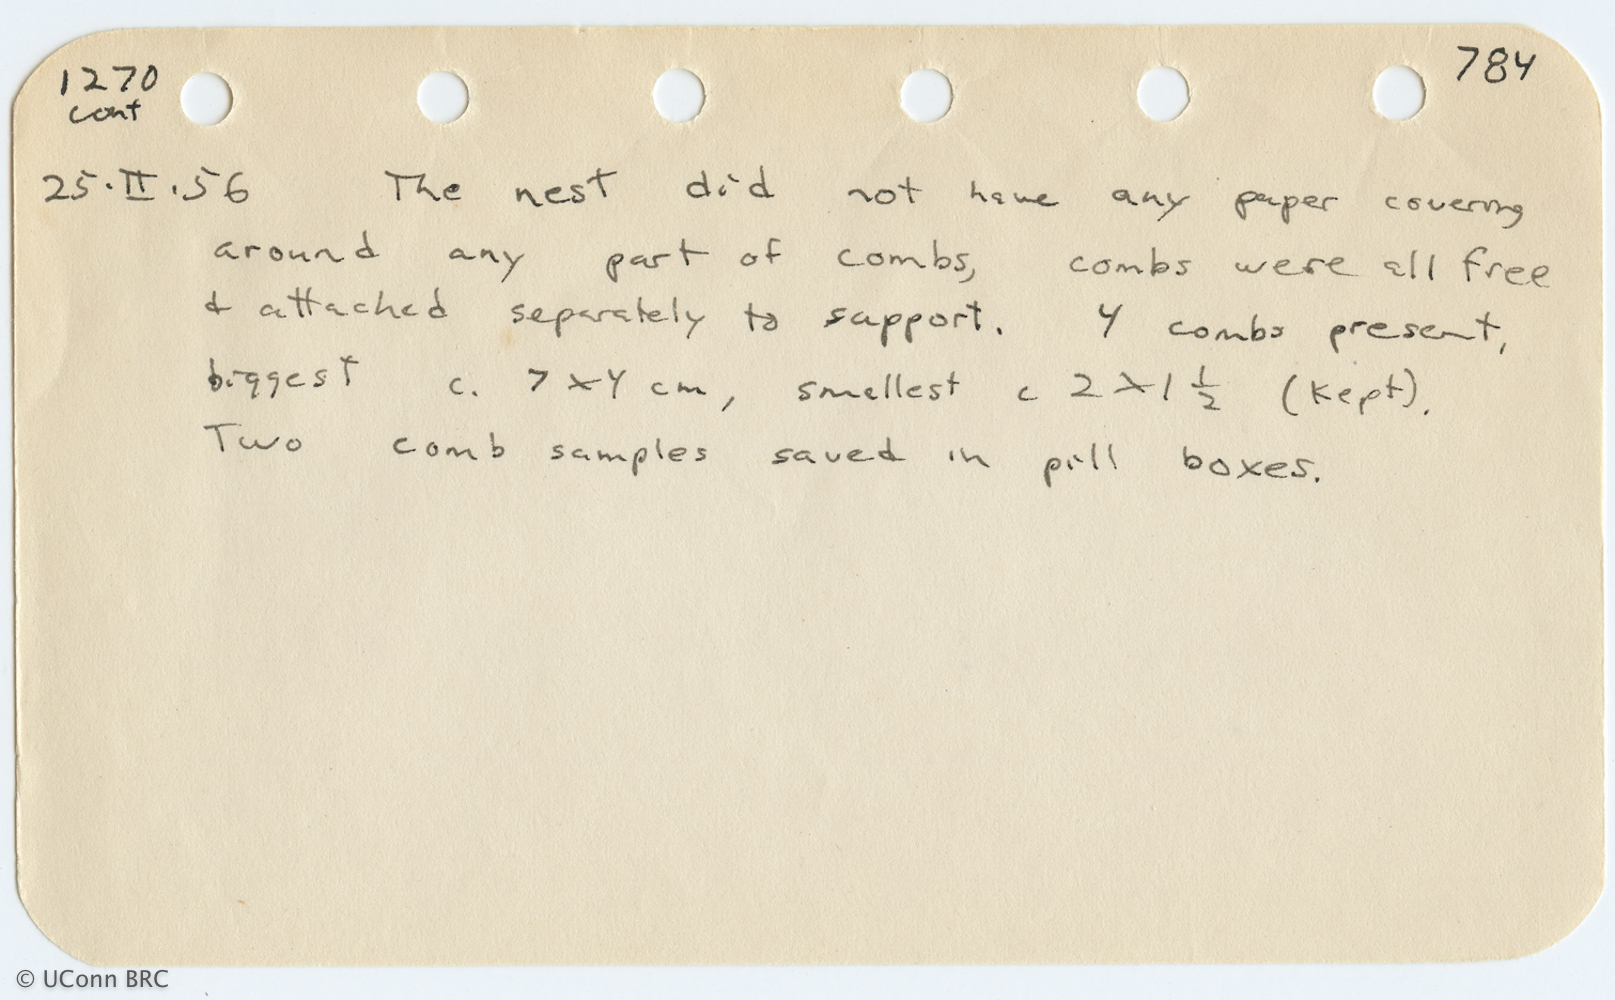 1270 784
cont
25·II·56 The nest did not have any paper covering
around any part of combs, combs were all free
& attached separately to support. 4 combs present,
biggest c. 7 x 4 cm, smallest c 2 x 1 1/2 (kept).
Two comb samples saved in pill boxes.
© UConn BRC